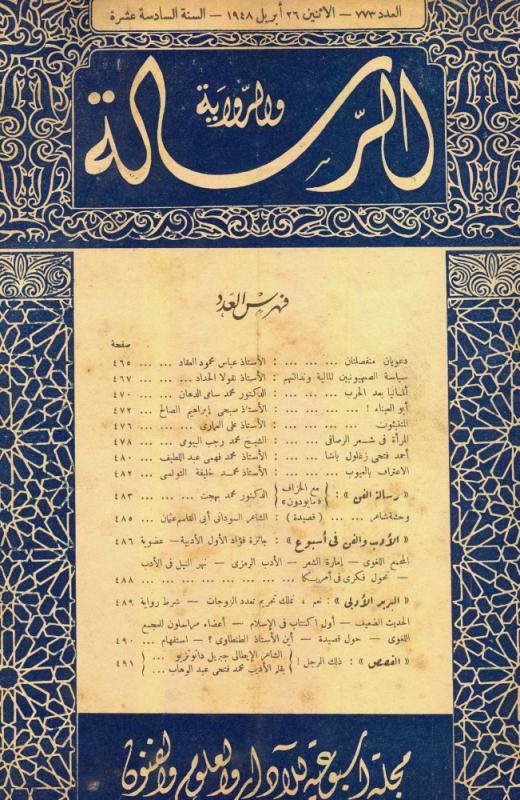 العدد ٧٧٣ — الاثنين ٢٦ أبريل ١٩٤٨ — السنة السادسة عشرة
الرسالة
والرواية
فهرس العدد
صفحة
دعويان منفصلتان ... ... ... : الأستاذ عباس محمود العقاد ... ... ٤٦٥
سياسة الصهيونيين المالية ونذالتهم : الأستاذ نقولا الحداد ... ... ٤٦٧
ألمانيا بعد الحرب ... ... ... : الدكتور محمد سامى الدهان ... ... ٤٧٠
أبو العيناء ! ... ... ... : الأستاذ صبحى إبراهيم الصالح ... ٤٧٢
... ... ... : الأستاذ على العمارى ... ... ... ٤٧٦
المرأة فى شعر الرصافى ... ... : الشيخ محمد رجب البيومى ... ... ٤٧٨
أحمد فتحى زغلول باشا ... ... : الأستاذ محمد فهمى عبد اللطيف ... ٤٨٠
الاعتراف بالعيوب ... ... ... : الأستاذ محمد خليفة التونسى ... ٤٨٢
« رسالة الفن » : { مع الخزاف « مايودون » } الدكتور محمد بهجت ... ... ... ٤٨٣
وحشة شاعر ... ... ( قصيدة ) : الشاعر السودانى أبى القاسم عثمان ... ٤٨٥
« الأدب والفن فى أسبوع » : جائزة فؤاد الأول الأدبية — عضوية ٤٨٦
المجمع اللغوى — إمارة الشعر — الأدب الرمزى — نهر النيل فى الأدب
— تحول فكرى فى أمريكا ... ... ... ... ... ... ٤٨٨
« البريد الأدبى » : نعم ، نملك تحريم تعدد الزوجات — شرط رواية ٤٨٩
الحديث الضعيف — أول اكتتاب فى الإسلام — أعضاء مراسلون للمجمع
اللغوى — حول قصيدة — أين الأستاذ الطنطاوى ؟ — استفهام ... ٤٩٠
« القصص » : ذلك الرجل ! { الشاعر الإيطالى جبريل دانونزيو ... } ٤٩١
بقلم الأديب محمد فتحى عبد الوهاب ...
مجلة أسبوعية للآداب والعلوم والفنون